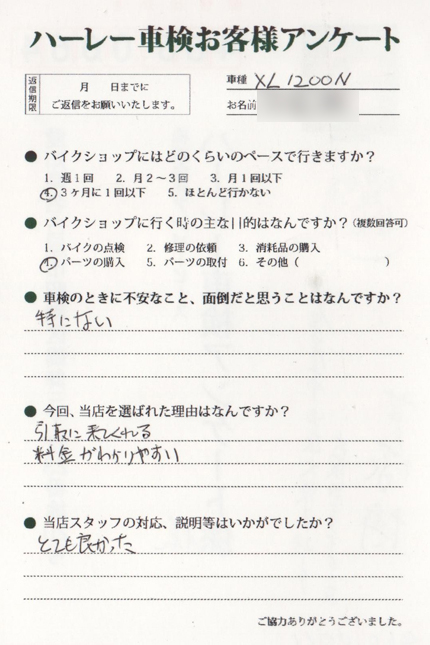 ハーレー車検お客様アンケート
返信期限
月　　日までに
ご返信をお願いいたします。
車種 XL1200N
お名前
● バイクショップにはどのくらいのペースで行きますか？
1. 週1回　2. 月2～3回　3. 月1回以下
4. 3ヶ月に1回以下　5. ほとんど行かない
● バイクショップに行く時の主な目的はなんですか？（複数回答可）
1. バイクの点検　2. 修理の依頼　3. 消耗品の購入
4. パーツの購入　5. パーツの取付　6. その他（　　　　　　　）
● 車検のときに不安なこと、面倒だと思うことはなんですか？
特にない
● 今回、当店を選ばれた理由はなんですか？
引取に来てくれる
料金がわかりやすい
● 当店スタッフの対応、説明等はいかがでしたか？
とても良かった
ご協力ありがとうございました。